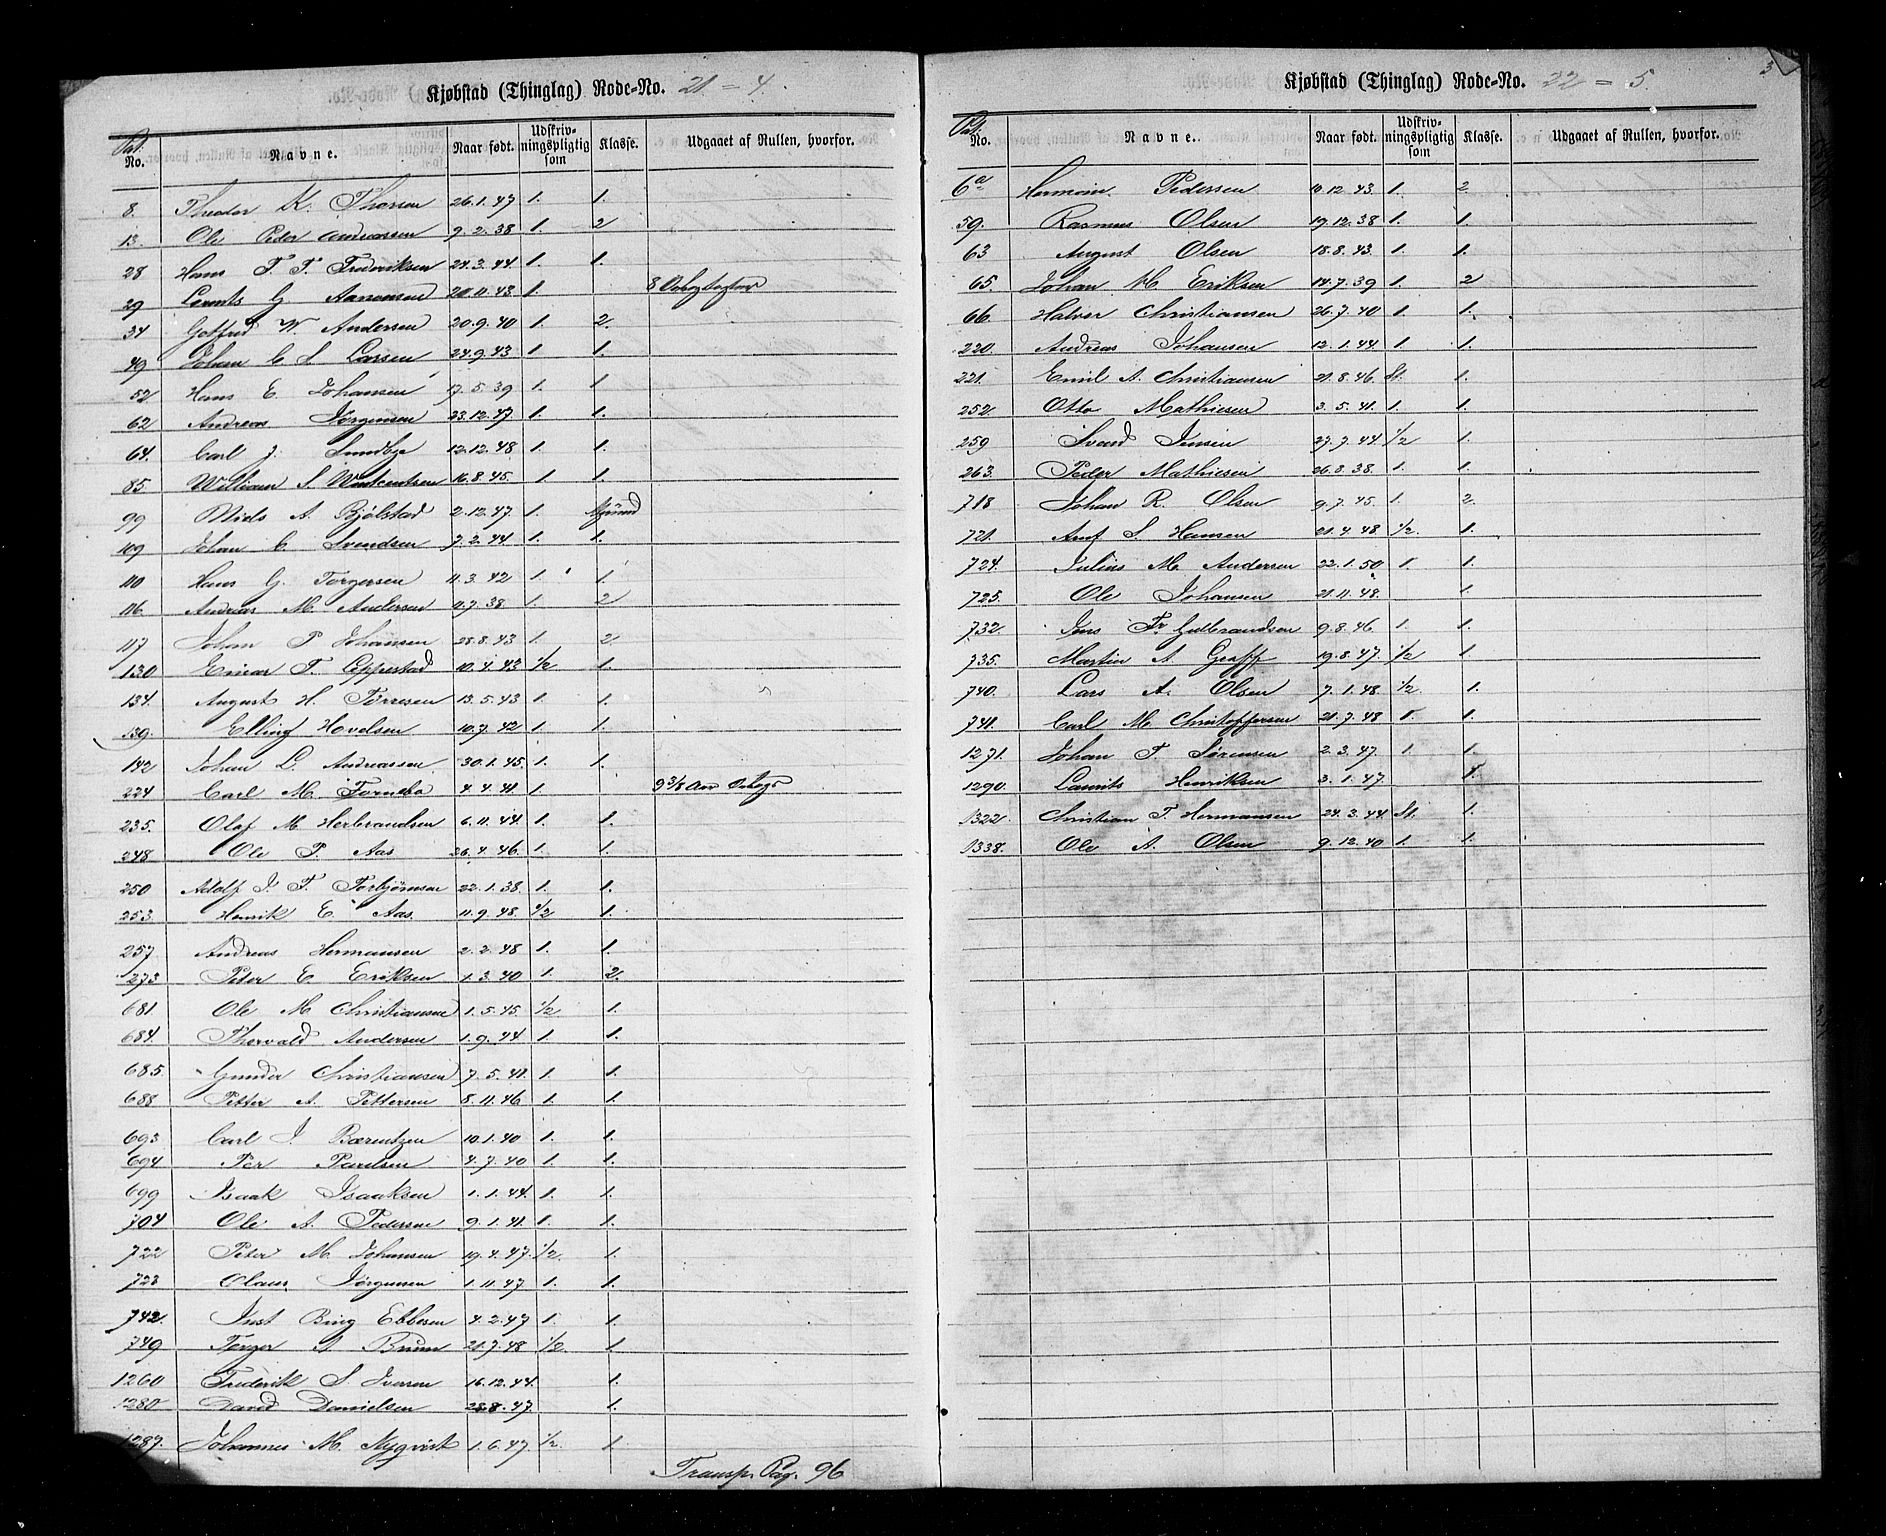 Kjøbstad (Thinglag) Rode-No. 21 = 4.
Pat. No. Navne. Naar født. Udskriv-ningspligtig som Klasse. Udgaaet af Rullen, hvorfor.
8. Theodor K. Thorsen 26.1.47 1. 1.
13. Ole Peder Andreassen 9.2.38 1. 2
28 Hans T. F. Frederiksen 24.3.44 1. 1.
29 G Aanonsen 20.11.43 1.
34 Gotfred W. Andersen 20.9.40 1. 2.
49 Johan C S Larsen 24.9.43 1. 1.
52 Hans E. Johansen 17.5.39 1. 1
62 Andreas Jörgensen 23.12.47 1. 1.
64. Carl J. Lundbye 12.12.48 1. 1.
85. William S. Wincentsen 16.8.45. 1. 1.
99 Niels A. Bjölstad 2.12.47. 1.
109 Johan C. Svendsen 7.2.44. 1. 1.
110 Hans G. Torgersen 11.3.42 1. 1.
116 Andreas M. Andersen 11.7.38 1. 2
117 Johan P Johansen 28.8.43 1. 2
130 Einar T. Eppestad 10.4.43 1/2 1.
134. August H. Torresen 13.5.43 1. 1.
139. Elling Hovelsen 10.7.42 1. 1.
142 Johan L. Andreassen 30.1.45. 1. 1.
224 Carl M. Fornebo 4.4.41 1.
235. Olaf M. Herbrandsen 6.11.44. 1. 1.
248 Ole P. Aas 26.4.46. 1. 1.
250 Adolf J. T. Torbjörnsen 22.1.38. 1. 1.
253. Henrik E. Aas. 11.9.48. 1/2 1.
257 Andreas Hermansen 2.2.48 1. 1.
273 Peter E. Eriksen 1.3.40 1. 2.
681. Ole M Christiansen 1.5.45. 1/2 1.
684. Thorvald Andersen 1.9.44 1. 1.
685. Gunder Christiansen 7.5.41. 1. 1.
688 Petter A. Pettersen 8.11.46 1. 1.
693 Carl J. Bærentzen 10.1.40 1. 1.
694 Per Paulsen 4.7.40 1. 1.
699 Isaak Isaaksen 1.1.44. 1. 1.
704 Ole A. Pedersen 9.1.41. 1. 1.
722 Peter M. Johansen 19.4.47. 1/2 1.
723 Olaus Jörgensen 1.11.47 1. 1.
742. Just Bing Ebbesen 4.2.47 1. 1.
749 Torger A Bruun 21.7.48 1/2 1.
1260 Frederik S. Iversen 16.12.44. 1.
1280 David Danielsen 28.8.47. 1.
1287. Johannes M. Nyqvist 1.6.47. 1/2. 1.
Transp. Pag. 96
3
Kjøbstad (Thinglag) Rode-No. 22 = 5.
Pat. No. Navne. Naar født. Udskriv-ningspligtig som Klasse. Udgaaet af Rullen, hvorfor.
6a Hermann Pedersen 10.12.43. 1. 2.
59. Rasmus Olsen 19.12.38 1. 1.
63 August Olsen 18.8.43. 1. 1.
65. Johan M. Eriksen 14.7.39 1. 2
66. Halvor Christiansen 26.7.40 1. 1.
220. Andreas Johansen 12.1.44. 1. 1.
221. Emil A. Christiansen 21.8.46. St. 1.
252 Otto Mathiesen 3.5.41. 1. 1.
259 Svend Jensen 27.7.44 1/2 1.
263. Peder Mathiesen 26.3.38. 1. 1.
718 Johan R. Olsen 9.7.45. 1. 2.
721. Anf S. Hansen 21.4.48 1/2. 1.
724. Julius M. Andersen 22.1.50 1. 1.
725. Ole Johansen 21.11.48. 1.
732. Jens Fr. Gulbrandsen 9.8.46. 1. 1.
735. Martin A. Graff 19.8.47. 1/2 1.
740. Lars A. Olsen 7.1.48. 1/2 1.
741. Carl M. Christoffersen 21.7.48 1. 1.
1271. Johan T. Sørensen 2.3.47. 1. 1.
1290. Laurits Henriksen 3.1.47 1.
1322. Christian T. Hermansen 24.3.44 St. 1.
1338. Ole A. Olsen 9.12.40 1. 1.